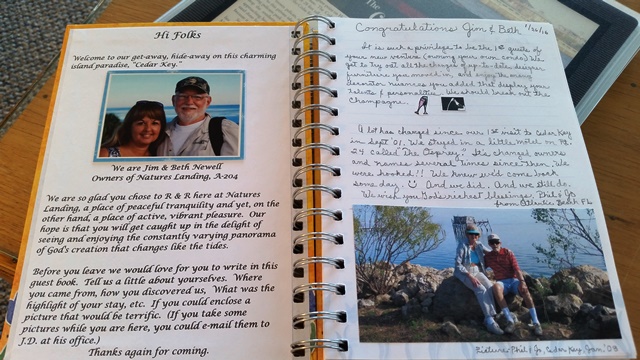 Hi Folks
Welcome to our get-away, hide-away on this charming
island paradise, "Cedar Key."
We are Jim & Beth Newell
Owners of Natures Landing, A-204
We are so glad you chose to R & R here at Natures
Landing, a place of peaceful tranquility and yet, on the
other hand, a place of active, vibrant pleasure. Our
hope is that you will get caught up in the delight of
seeing and enjoying the constantly varying panorama
of God's creation that changes like the tides.
Before you leave we would love for you to write in this
guest book. Tell us a little about yourselves. Where
you came from, how you discovered us, What was the
highlight of your stay, etc. If you could enclose a
picture that would be terrific. (If you take some
pictures while you are here, you could e-mail them to
J.D. at his office.)
Thanks again for coming.
Congratulations Jim & Beth
It is such a privilege to be the 1st guests of
your new venture (owning your own condo). We
get to try out all the changes of up-to-date designer
furniture you moved in, and enjoy the many
decorator nuances you added that display your
talents & personalities. We should break out the
Champagne.
A lot has changed since our 1st visit to Cedar Key
in Sept '01. We stayed in a little motel on Rt.
24 called The Osprey." It's changed owners
and names several times since then. We
were hooked!! We knew we'd come back
some day. And we did. And we still do.
We wish you God's richest blessings, Phil & Jo
from Atlantic Beach FL
Picture: Phil & Jo, Cedar Key, Jan,